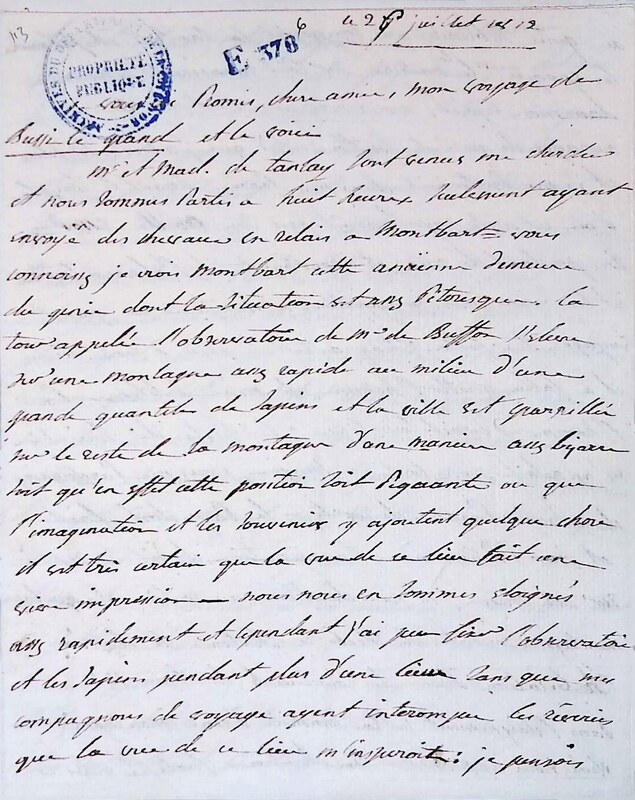 13
6
ce 26 juillet 1812
E 376
ARCHIVES DU
PROPRIÉTÉ
PUBLIQUE
vous Promis, chere amie, mon voyage de
Bussi le grand et le voici
Mr et Mad. de tanlay sont venus me chercher
et nous sommes Partis a huit heures seulement ayant
envoyé des chevaux en relais a Montbart = vous
connoissez je crois Montbart cette ancienne demeure
du genie dont la situation est assez Pitoresque. la
tour appelée l'observatoire de Mr de Buffon s'eleve
sur une montagne assez rapide au milieu d'une
grande quantité de sapins et la ville est eparpillée
sur le reste de la montagne d'une maniere assez bizarre
soit qu'en effet cette position soit Piquante ou que
l'imagination et les souvenirs y ajoutent quelque chose
il est tres certain que la vue de ce lieu fait une
vive impression — nous nous en sommes eloignés
assez rapidement et cependant j'ai pu fixer l'observatoire
et les sapins pendant plus d'une lieue sans que mes
compagnons de voyage ayent interompu les rêveries
que la vue de ce lieu m'inspiroit : je pensois